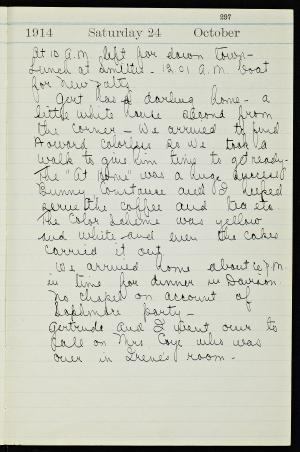 297
1914 Saturday 24 October
At 10 A.M. left for down town -
Lunch at Smiths - 12.01 A.M. boat
for New Paltz
Gert has a darling home - a
little white house second from
the corner - We arrived to find
Howard colorless so we took a
walk to give him time to get ready -
The "At Home" was a huge success
Bunny, Constance and I helped
serve the coffee and tea etc
The color scheme was yellow
and white - and even the cakes
carried it out
We arrived home about 6 P.M.
in time for dinner in Davison
No chapel on account of
Sophmore party -
Gertrude and I went over to
call on Mrs who was
over in Irene's room -